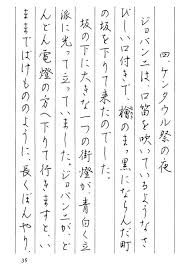 四、ケンタウル祭の夜
ジョバンニは、口笛を吹いているようなさ
びしい口付きで、檜のまっ黒にならんだ町
の坂を下りて来たのでした。
坂の下に大きな一つの街燈が、青白く立
派に光って立っていました。ジョバンニがど
んどん電燈の方へ下りて行きますと、い
ままでばけもののように、長くぼんやり、
35